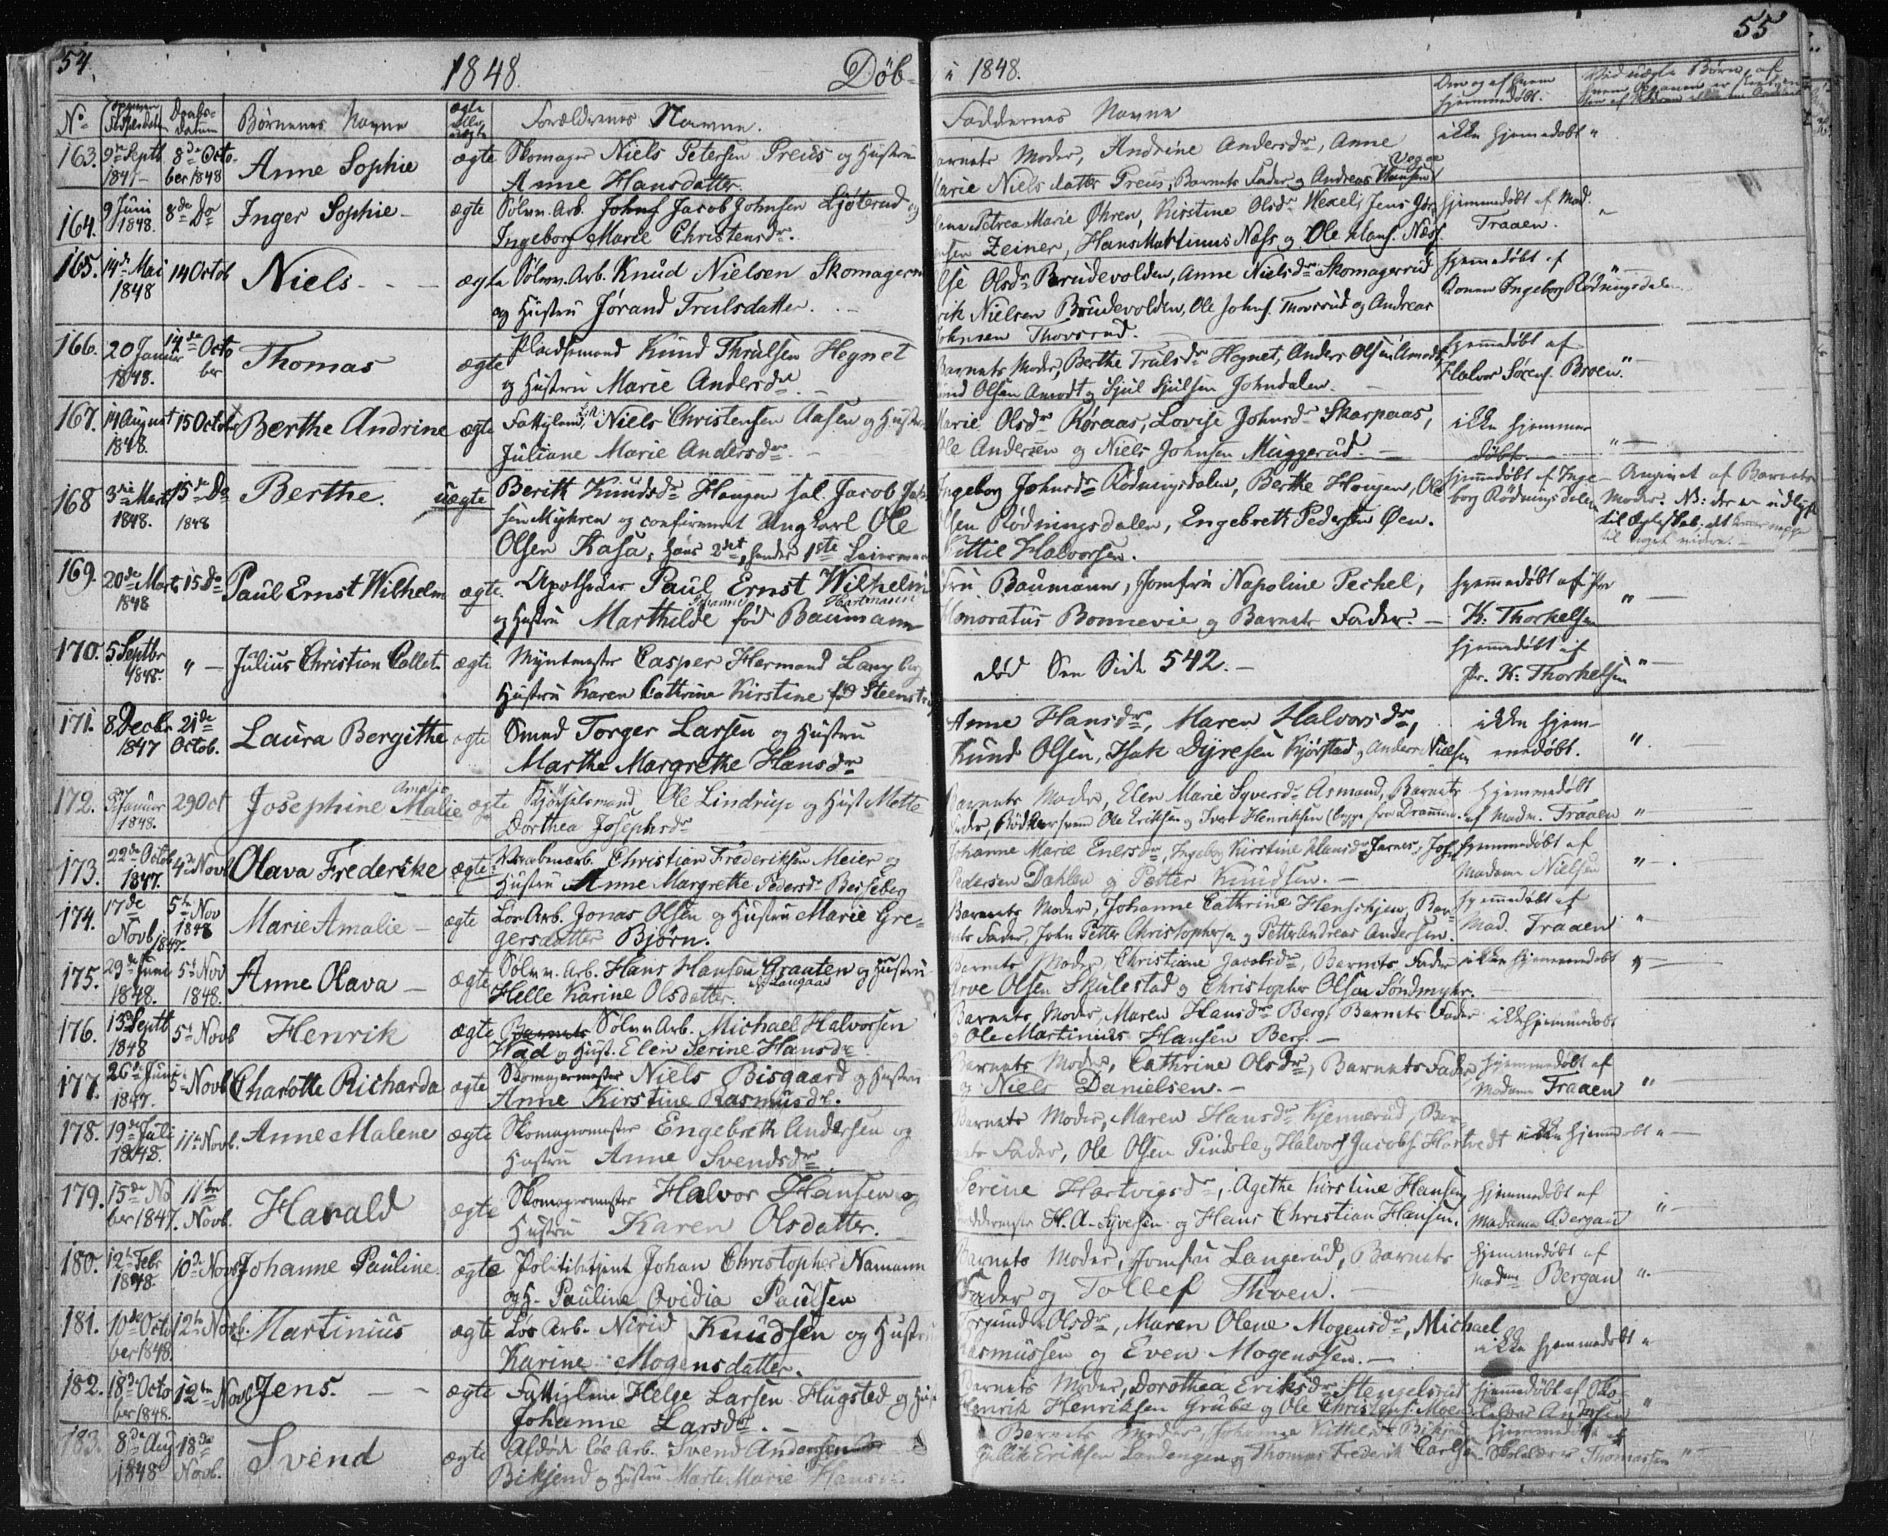 54.
1848.
Døb-
No
Fødselsdatum
Daabs-datum
Børnenes Navne
ægte eller uægte
Forældrenes Navne.
163. 9de Septb 1847 8de October 1848 Anne Sophie ægte Skomager Niels Petersen Preus og Hustru
Anne Hansdatter.
164. 9 Juni 1848. 8de Do Inger Sophie ægte Sølvv. Arb. Johns Jacob Johnsen Ljøterud og
Ingeborg Marie Christensdr.
165. 14de Mai 1848 14 Octob Niels ægte Sølvv. Arb. Knud Nielsen Skomagerru
og Hustru Jørand Trulsdatter.
166. 20 Januar 1848. 14de October Thomas ægte Pladsemand Knud Thrulsen Hegnet
og Hustru Marie Andersdr
167. 14 August 1848. 15 Octob Berthe Andrine ægte Fattiglem Niels Christensen Aasen og Hustru
Juliane Marie Andersdr.
168 3die Mart 1848. 15de Do 1848 Berthe. uægte Berith Knudsdr Haugen sal. Jacob
sen Myhren og confirmeret Ungkarl Ole
Olsen Kasa, hans 2det, hendes 1ste Leiermaal
169. 20de Mart 1848 15 Do Paul Ernst Wilhelm ægte Apotheker Paul Ernst Wilhelm
Hartmann
og Hustru Marthilde Johanne fød Baumann
170. 5 Septbr 1848. " Julius Christian Collet ægte Myntmester Casper Hermand Lang
Hustru Karen Cathrine Kirstine fød Steenstrup
171. 8 Decbr 1847 21de Octob. Laura Bergithe ægte Smed Torger Larsen og Hustru
Marthe Margrethe Hansdr
172. Januar 1848. 29 Oct Josephine Amalie Malie ægte Ole Lindrup og Hust Mette
Dorthea Josephsdr
173. 22de Octob 1847. 4de Novb Olava Frederike ægte Christian Frederiksen Meier og
Hustru Anne Margrethe Pedersdr Besseberg
174. 17de Novb 1847. 5te Nov 1848 Marie Amalie ægte Løs Arb. Jonas Olsen og Hustru Marie Gre-
gersdatter Bjørn.
175. 29de Juni 1848. 5te Nov 1848. Anne Olava ægte Sølvv. Arb. Hans Hansen Grauten og Hustru
Helle Karine Olsdatter.
176. 13 Septb 1848 5te Novb Henrik ægte Barnets Sølvv Arb. Michael Halvorsen
Wad og Hust. Elen Serine Hansdr
177. 26de Juni 1847. 5te Novb Charlotte Richarda ægte Skomagermester Niels Bisgaard og Hustru
Anne Kirstine Rasmusdr.
178. 19de Juli 1848. 11te Novb. Anne Malene ægte Skomagermester Engebreth Andersen og
Hustru Anne Svendsdr
179. 15de No ber 1847. 11te Novb. Harald ægte Skomagermester Halvor Hansen og
Hustru Karen Olsdatter.
180. 12te Febr 1848. 10de Novb Johanne Pauline. ægte Politibetjent Johan Christopher Namann
og H. Pauline Ovidia Paulsen
181. 10de October 1848. 12te Novb. Martinius ægte Løs Arb. Nirid Knudsen og Hustru
Karine Mogensdatter.
182. 18de October 1848. 12te Novb Jens. ægte Fattiglem Helge Larsen Hugsted og
Johanne Larsdr.
183. 8de Aug 1848 18de Novb. Svend ægte Afdøde løs Arb. Svend Andersen
Bikjend og Hustru Marte Marie Hansdr.
55
i 1848.
Faddernes Navne
Om og af hvem hjemmedøbt.
Ved uægte Børn, af hvem
Barnets Moder, Andrine Andersdr, Anne ikke hjemmedøbt "
Marie Nielsdatter Preus, Barnets Fader og Andreas Hansen
Petrea Marie Øhren, Kirstine Olsdr Wexels, Jens Jør- hjemmedøbt af Mad. Traaen.
gensen Zeiner, Hans Martinus Næss og Ole Hans. Næss
Else Olsdr Brudevolden, Anne Nielsdr Skomagerrud hjemmedøbt af
Konen Ingeborg Rødningsdalen
Erik Nielsen Brudevolden, Ole Johns. Thorsrud og Andreas
Johnsen Thorsrud.
Barnets Moder, Berthe Trulsdr Hegnet, Anders Olsen Amodt, hjemmedøbt af
Halvor Sørens. Broen. "
Knud Olsen Amodt og Gjul Gjulsen Johndalen.
Marie Olsdr Røraas, Lovise Johnsdr Skarpaas, ikke hjemme-
døbt.
Ole Andersen og Niels Johnsen Muggerud.
Ingeborg Johnsdr Rødningsdalen, Berthe Haugen, Ole hjemmedøbt af Inge-
borg Rødningsdalen
Olsen Rødningsdalen, Engebreth Pedersen Øen.
Kittil Halvorsen.
Angivet af Barnets
Moder. NB: de er udlyst
til Ægteskab,
til noget videre.
Fru Baumann, Jomfru Napoline Pechel, hjemmedøbt af Pr
K. Thorkelsen "
Honoratus Bonnevie og Barnets Fader.
død See Side 542.
hjemmedøbt af
Pr. K. Thorkelsen "
Anne Hansdr, Maren Halvorsdr, ikke hjem-
medøbt. "
Knud Olsen, Isak Dyresen Kjørstad og Anders Nielsen
Barnets Moder, Elen Marie Syversdr Asmand, Barnets hjemmedøbt
af Madm. Traaen "
Fader, Bødkersvend Ole Eriksen og Ivar Henriksen (begge fra Drammen.
Johanne Marie Enersdr, Ingeborg Kirstine Hansdr Jarnes, hjemmedøbt af
Madame Nielsen "
Pedersen Dahlen og Petter Knudsen.
Barnets Moder, Johanne Cathrine Henschjen, Bar- hjemmedøbt af
Mad. Traaen "
nets Fader, John Petter Christophersen og Petter Andreas Andersen.
Barnets Moder, Christiane Jacobsdr, Barnets Fader ikke hjemmedøbt
Arve Olsen Skulestad og Christopher Olsen Søndmyhr.
Barnets Moder, Maren Hansdr Berg, Barnets Fader ikke hjemmedøbt
og Ole Martinius Hansen Berg.
Barnets Moder, Cathrine Olsdr, Barnets Fader, hjemmedøbt af
Madame Traaen "
og Niels Danielsen.
Barnets Moder, Maren Hansdr Kjennerud, Bar-
nets Fader, Ole Olsen Pindsle og Halvor Jacobs. Hostvedt ikke hjemmedøbt "
Serine Hartvigsdr, Agethe Kirstine Hansen, hjemmedøbt af
Madame Bergan "
H. A. Syversen og Hans Christian Hansen.
Barnets Moder, Jomfru Langerud, Barnets hjemmedøbt af
Madme Bergan "
Fader og Tollef Thven.
Torgund Olsdr, Maren Olene Mogensdr, Michael ikke hjemmedøbt "
Rasmussen og Even Mogenssen.
Barnets Moder, Dorothea Eriksdr Stengelsrud hjemmedøbt af Sko-
Henrik Henriksen Grube og Ole Christens. Moen
Barnets Moder, Johanne Kittilsdr hjemmedøbt af
Gullik Eriksen Landengen og Thomas Frederik Carlsen Skolelærer Thomassen "